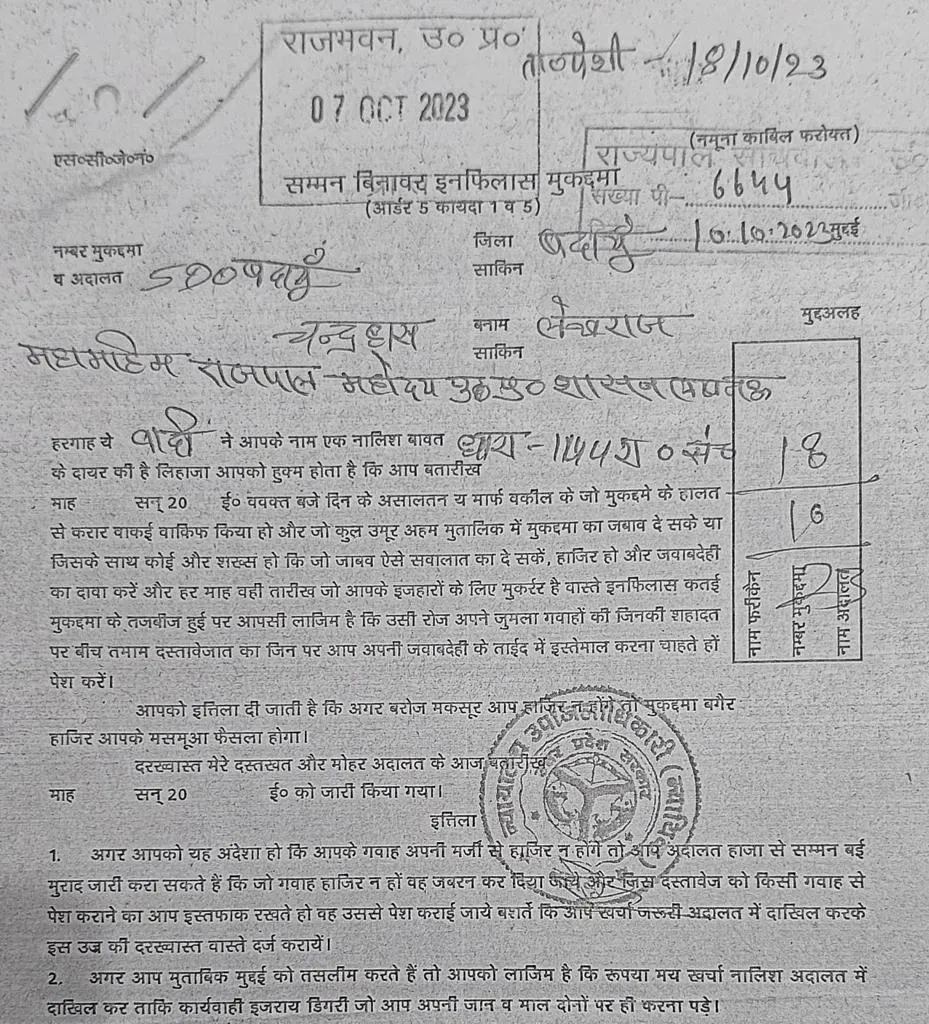 राजभवन, उ० प्र०
ता०पेशी - 18/10/23
07 OCT 2023
(नमूना काबिल फरोक्त)
एस०सी०जे०नं०
राज्यपाल
सम्मन बिनावर इनफिलास मुकद्दमा
संख्या पी- 6644
(आर्डर 5 कायदा 1 व 5)
जिला बदायूँ 10.10.2023 मुद्दई
नम्बर मुकद्दमा
साकिन
व अदालत SDO बदायूँ
चन्द्रहास बनाम लेखराज मुद्दअलह
साकिन
महामहिम राजपाल महोदय उ०प्र० शासन लखनऊ
हरगाह ये वादी ने आपके नाम एक नालिश बावत धारा - 144 रा० सं०
के दायर की है लिहाजा आपको हुक्म होता है कि आप बतारीख
माह सन् 20 ई० ववक्त बजे दिन के असालतन य मार्फ वकील के जो मुकद्दमे के हालत
से करार वाकई वाकिफ किया हो और जो कुल उमूर अहम मुतालिक में मुकद्दमा का जबाव दे सके या
जिसके साथ कोई और शख्स हो कि जो जाबव ऐसे सवालात का दे सकें, हाजिर हो और जवाबदेही
का दावा करें और हर माह वही तारीख जो आपके इजहारों के लिए मुकर्रर है वास्ते इनफिलास कतई
मुकद्दमा के तजबीज हुई पर आपसी लाजिम है कि उसी रोज अपने जुमला गवाहों की जिनकी शहादत
पर बीच तमाम दस्तावेजात का जिन पर आप अपनी जवाबदेही के ताईद में इस्तेमाल करना चाहते हों
पेश करें।
18
10
नाम फरीकेन
नम्बर मुकद्दमा
नाम अदालत
आपको इत्तिला दी जाती है कि अगर बरोज मकसूर आप हाजिर न होंगे तो मुकद्दमा बगैर
हाजिर आपके मसमूआ फैसला होगा।
दरख्वास्त मेरे दस्तखत और मोहर अदालत के आज बतारीख
माह सन् 20 ई० को जारी किया गया।
न्यायालय उपजिलाधिकारी (न्यायिक)
उत्तर प्रदेश सरकार
इत्तिला
1. अगर आपको यह अंदेशा हो कि आपके गवाह अपनी मर्जी से हाजिर न होंगे तो आप अदालत हाजा से सम्मन बई
मुराद जारी करा सकते हैं कि जो गवाह हाजिर न हों वह जबरन कर दिया जाये और जिस दस्तावेज को किसी गवाह से
पेश कराने का आप इस्तफाक रखते हो वह उससे पेश कराई जाये बशर्ते कि आप खर्चा जरूरी अदालत में दाखिल करके
इस उज्र की दरख्वास्त वास्ते दर्ज करायें।
2. अगर आप मुताबिक मुद्दई को तसलीम करते हैं तो आपको लाजिम है कि रूपया मय खर्चा नालिश अदालत में
दाखिल कर ताकि कार्यवाही इजराय डिगरी जो आप अपनी जान व माल दोनों पर ही करना पड़े।